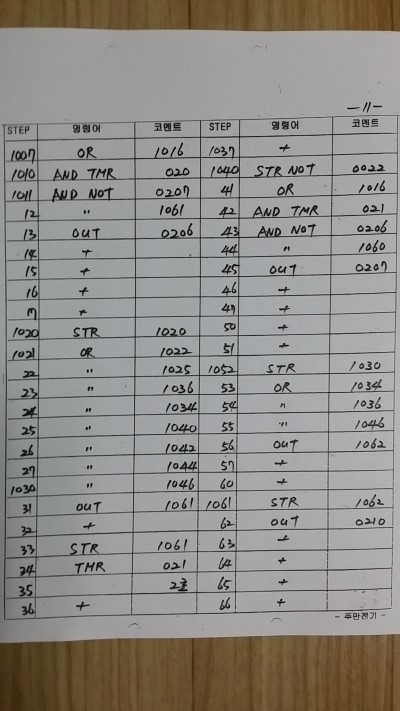 -11-
STEP 명령어 코멘트 STEP 명령어 코멘트
1007 OR 1016 1037 +
1010 AND TMR 020 1040 STR NOT 0022
1011 AND NOT 0207 41 OR 1016
12 " 1061 42 AND TMR 021
13 OUT 0206 43 AND NOT 0206
14 + 44 " 1060
15 + 45 OUT 0207
16 + 46 +
17 + 47 +
1020 STR 1020 50 +
1021 OR 1022 51 +
22 " 1025 1052 STR 1030
23 " 1036 53 OR 1034
24 " 1034 54 " 1036
25 " 1040 55 " 1046
26 " 1042 56 OUT 1062
27 " 1044 57 +
1030 " 1046 60 +
31 OUT 1061 1061 STR 1062
32 + 62 OUT 0210
33 STR 1061 63 +
34 TMR 021 64 +
35 2초 65 +
36 + 66 +
- 주만전기 -